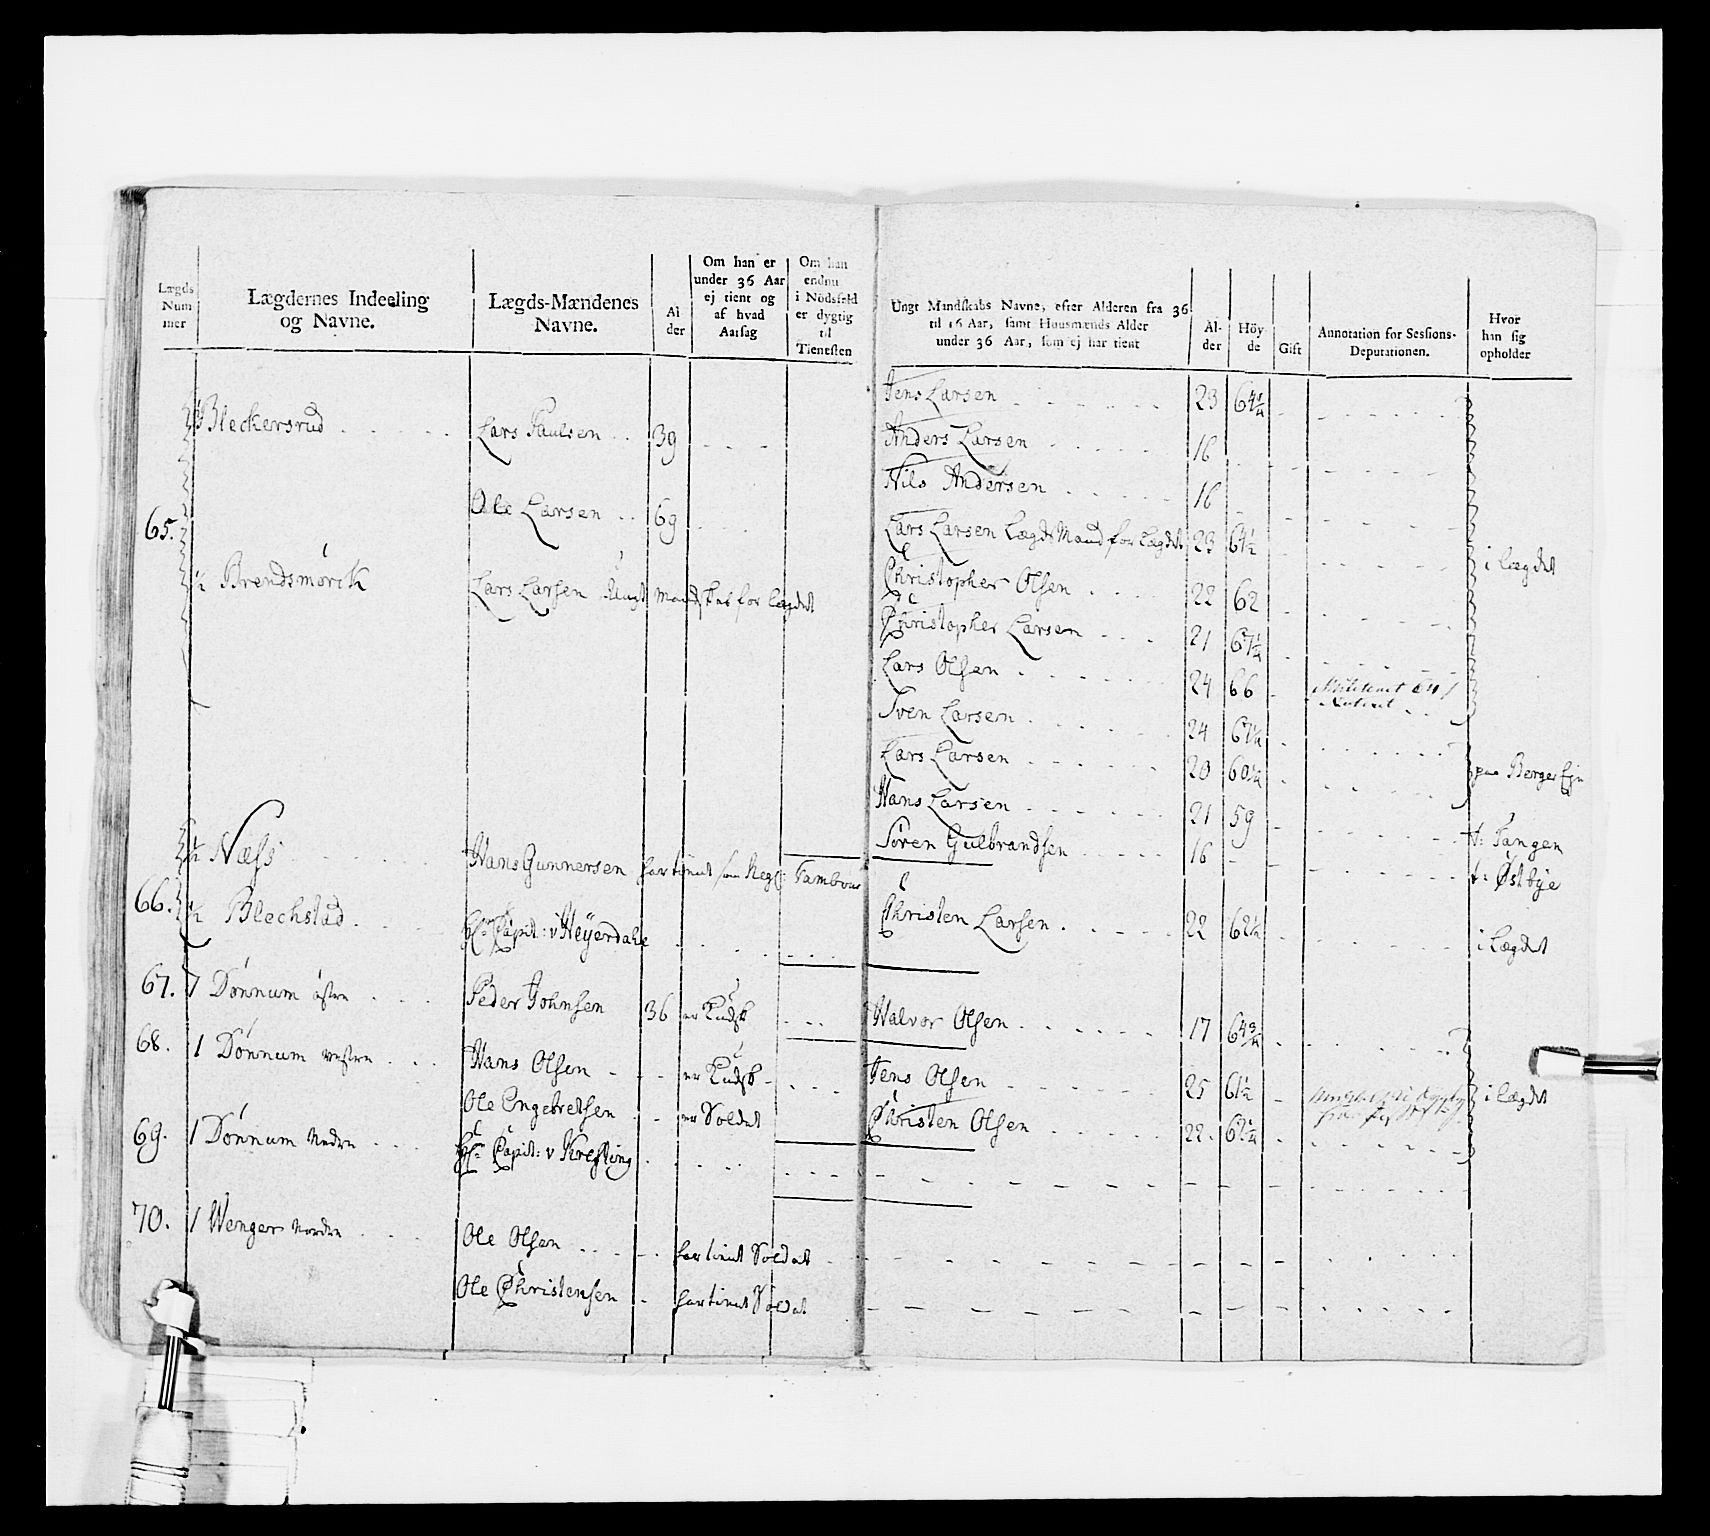 Lægds Num mer
Lægdernes Indeeling og Navne.
Lægds-Mændenes Navne.
Al der
Om han er under 36 Aar ej tient og af hvad Aarsag
Om han endnu i Nödsfald er dygtig til Tienesten
Ungt Mandskabs Navne, efter Alderen fra 36 til 16 Aar, samt Huusmænds Alder under 36 Aar, som ej har tient
Al- der
Höy- de
Gift
Annotation for Sessions- Deputationen.
Hvor han sig opholder
Jens Larsen 23 64 3/4
Bleckersrud Lars Paulsen 39
Anders Larsen 16
Nils Andersen 16
65. Ole Larsen 69
Lars Larsen Lægds Mand for Lægdet 23 64 1/2 i Lægdet
1/2 Brendsmörck Lars Larsen Ungt Mandskab for Lægdet
Christopher Olsen 22 62
Christopher Larsen 21 67 1/4
Lars Olsen 24 66
Sven Larsen 24
Lars Larsen 20 60 1/4 paa Berger
Hans Larsen 21 59 t: Tangen
Sören Gulbrandsen 16 t: Østbye
66. 1/2 Næss Hans Gunnersen har tient som Reg: Tambour
1/2 Blechstad Hr Capit: v Heyerdahl
Christen Larsen 22 62 1/2 i Lægdet
67. 1 Dönnum östre Peder Johnsen 36 er Kudsk
Halvor Olsen 17 64 3/4
68. 1 Dönnum vestre Hans Olsen er Kudsk
Jens Olsen 25 61 1/2 i Lægdet
Ole Engebretsen er Soldat
Christen Olsen 22. 62 1/4
69. 1 Dönnum Nedre Hr Capit: v Krefting
70. 1 Wenger Nordre Ole Olsen har tient Soldat
Ole Christensen har tient Soldat